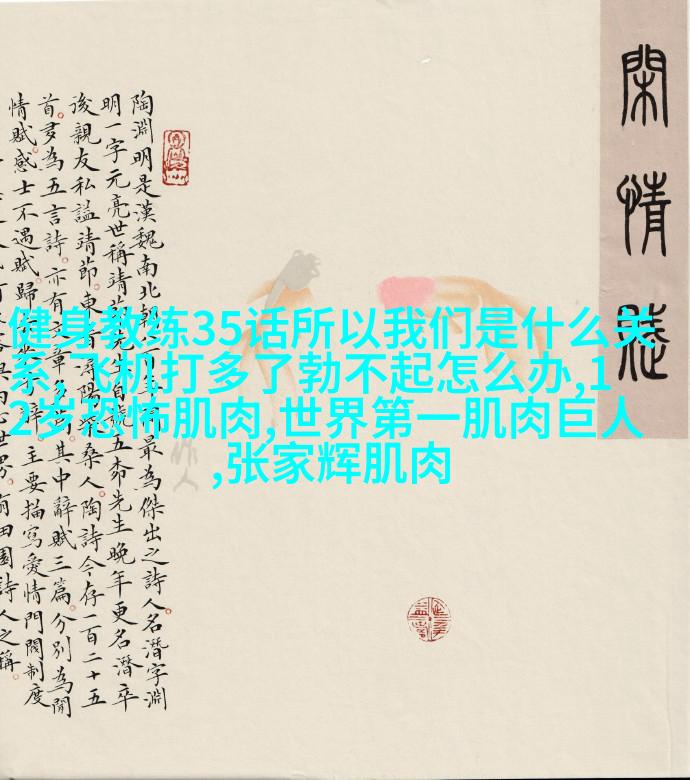 閑情
陶淵明是漢魏南北朝最為傑出之詩人名潛字淵
明一字元亮世稱靖節先生自號五柳先生晚年更名潛卒
後親友私謚靖節東晉潯陽柴桑人陶詩今存一百二十五
首多為五言詩亦有文章其中辭賦三篇分別為閒
情賦感士不遇賦歸主要描寫愛情門閥制度
田園詩人之稱
健身教练35话所以我们是什么关
系,飞机打多了勃不起怎么办,1
2岁恐怖肌肉,世界第一肌肉巨人
,张家辉肌肉